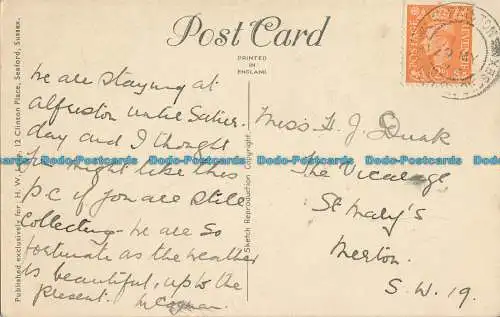 Post Card
PRINTED
IN
ENGLAND
We are staying at
Alfriston until Satur-
day and I thought
you might like this
p.c if you are still
collecting. We are so
fortunate as the weather
is beautiful, up to the
present.
Miss H. J. Dunk
The Vicarage
St Mary's
Merton.
S.W. 19.
Published exclusively for H. W. 12 Clinton Place, Seaford, Sussex.
Sketch Reproduction Copyright.
POSTAGE
Dodo-Postcards Dodo-Postcards Dodo-Postcards Dodo-Postcards Dodo-Postcards